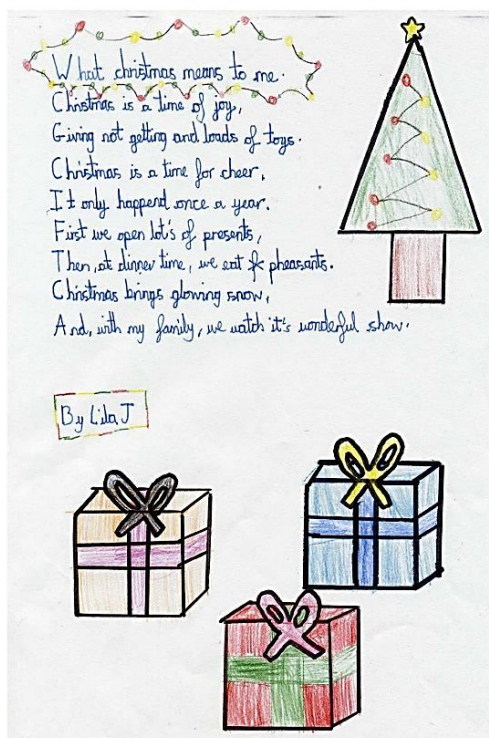 What christmas means to me.
Christmas is a time of joy,
Giving not getting and loads of toys.
Christmas is a time for cheer,
It only happend once a year.
First we open lot's of presents,
Then, at dinner time, we eat pheasants.
Christmas brings glowing snow,
And, with my family, we watch it's wonderful show.
By Lila J